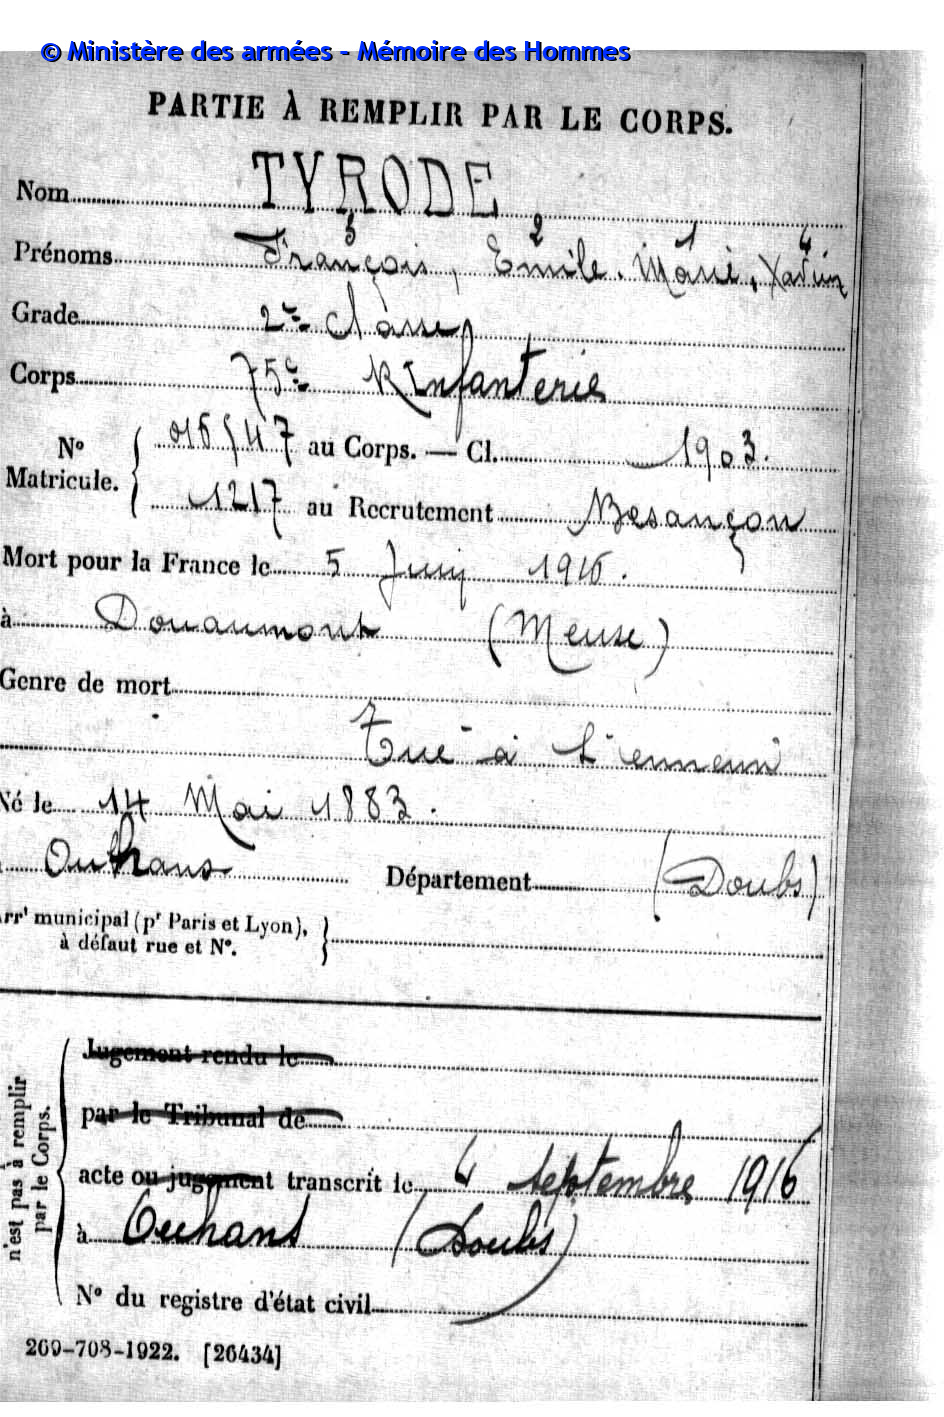 © Ministère des armées - Mémoire des Hommes
PARTIE À REMPLIR PAR LE CORPS.
Nom TYRODE
3 2 1 4
Prénoms François, Emile. Marie, Xavier
Grade 2e classe
Corps 75e R Infanterie
No Matricule. { 016547 au Corps. — Cl. 1903.
1217 au Recrutement Besançon
Mort pour la France le 5 Juin 1916.
à Douaumont (Meuse)
Genre de mort
Tué à l'ennemi
Né le 14 Mai 1883.
Ouhans Département (Doubs)
Arrt municipal (pr Paris et Lyon), à défaut rue et No. }
n'est pas à remplir par le Corps.
Jugement rendu le
par le Tribunal de
acte ou jugement transcrit le 4 septembre 1916
à Ouhans (Doubs)
No du registre d'état civil
269-708-1922. [26434]